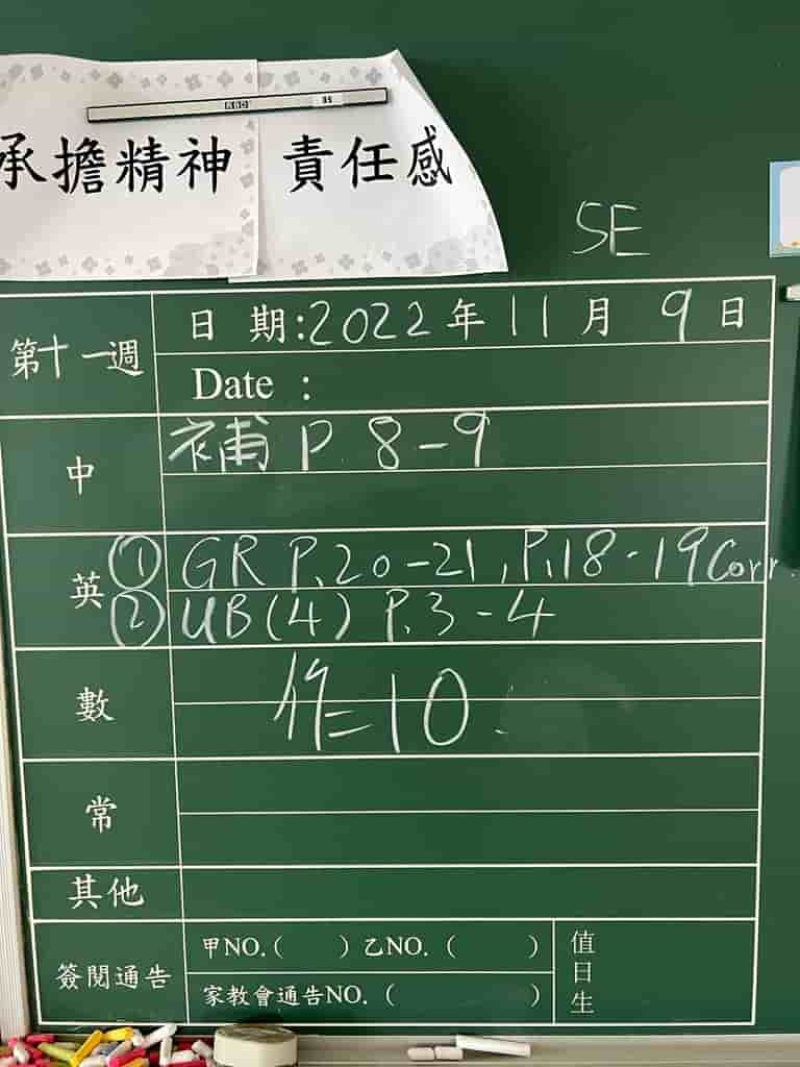 承擔精神 責任感
5E
第十一週
日 期:2022年11月9日
Date :
中
補 P. 8-9
英
① GR P.20-21, P.18-19 Corr.
② UB(4) P.3-4
數
作=10.
常
其他
簽閱通告
甲NO.( ) 乙NO.( )
家教會通告NO.( )
值日生